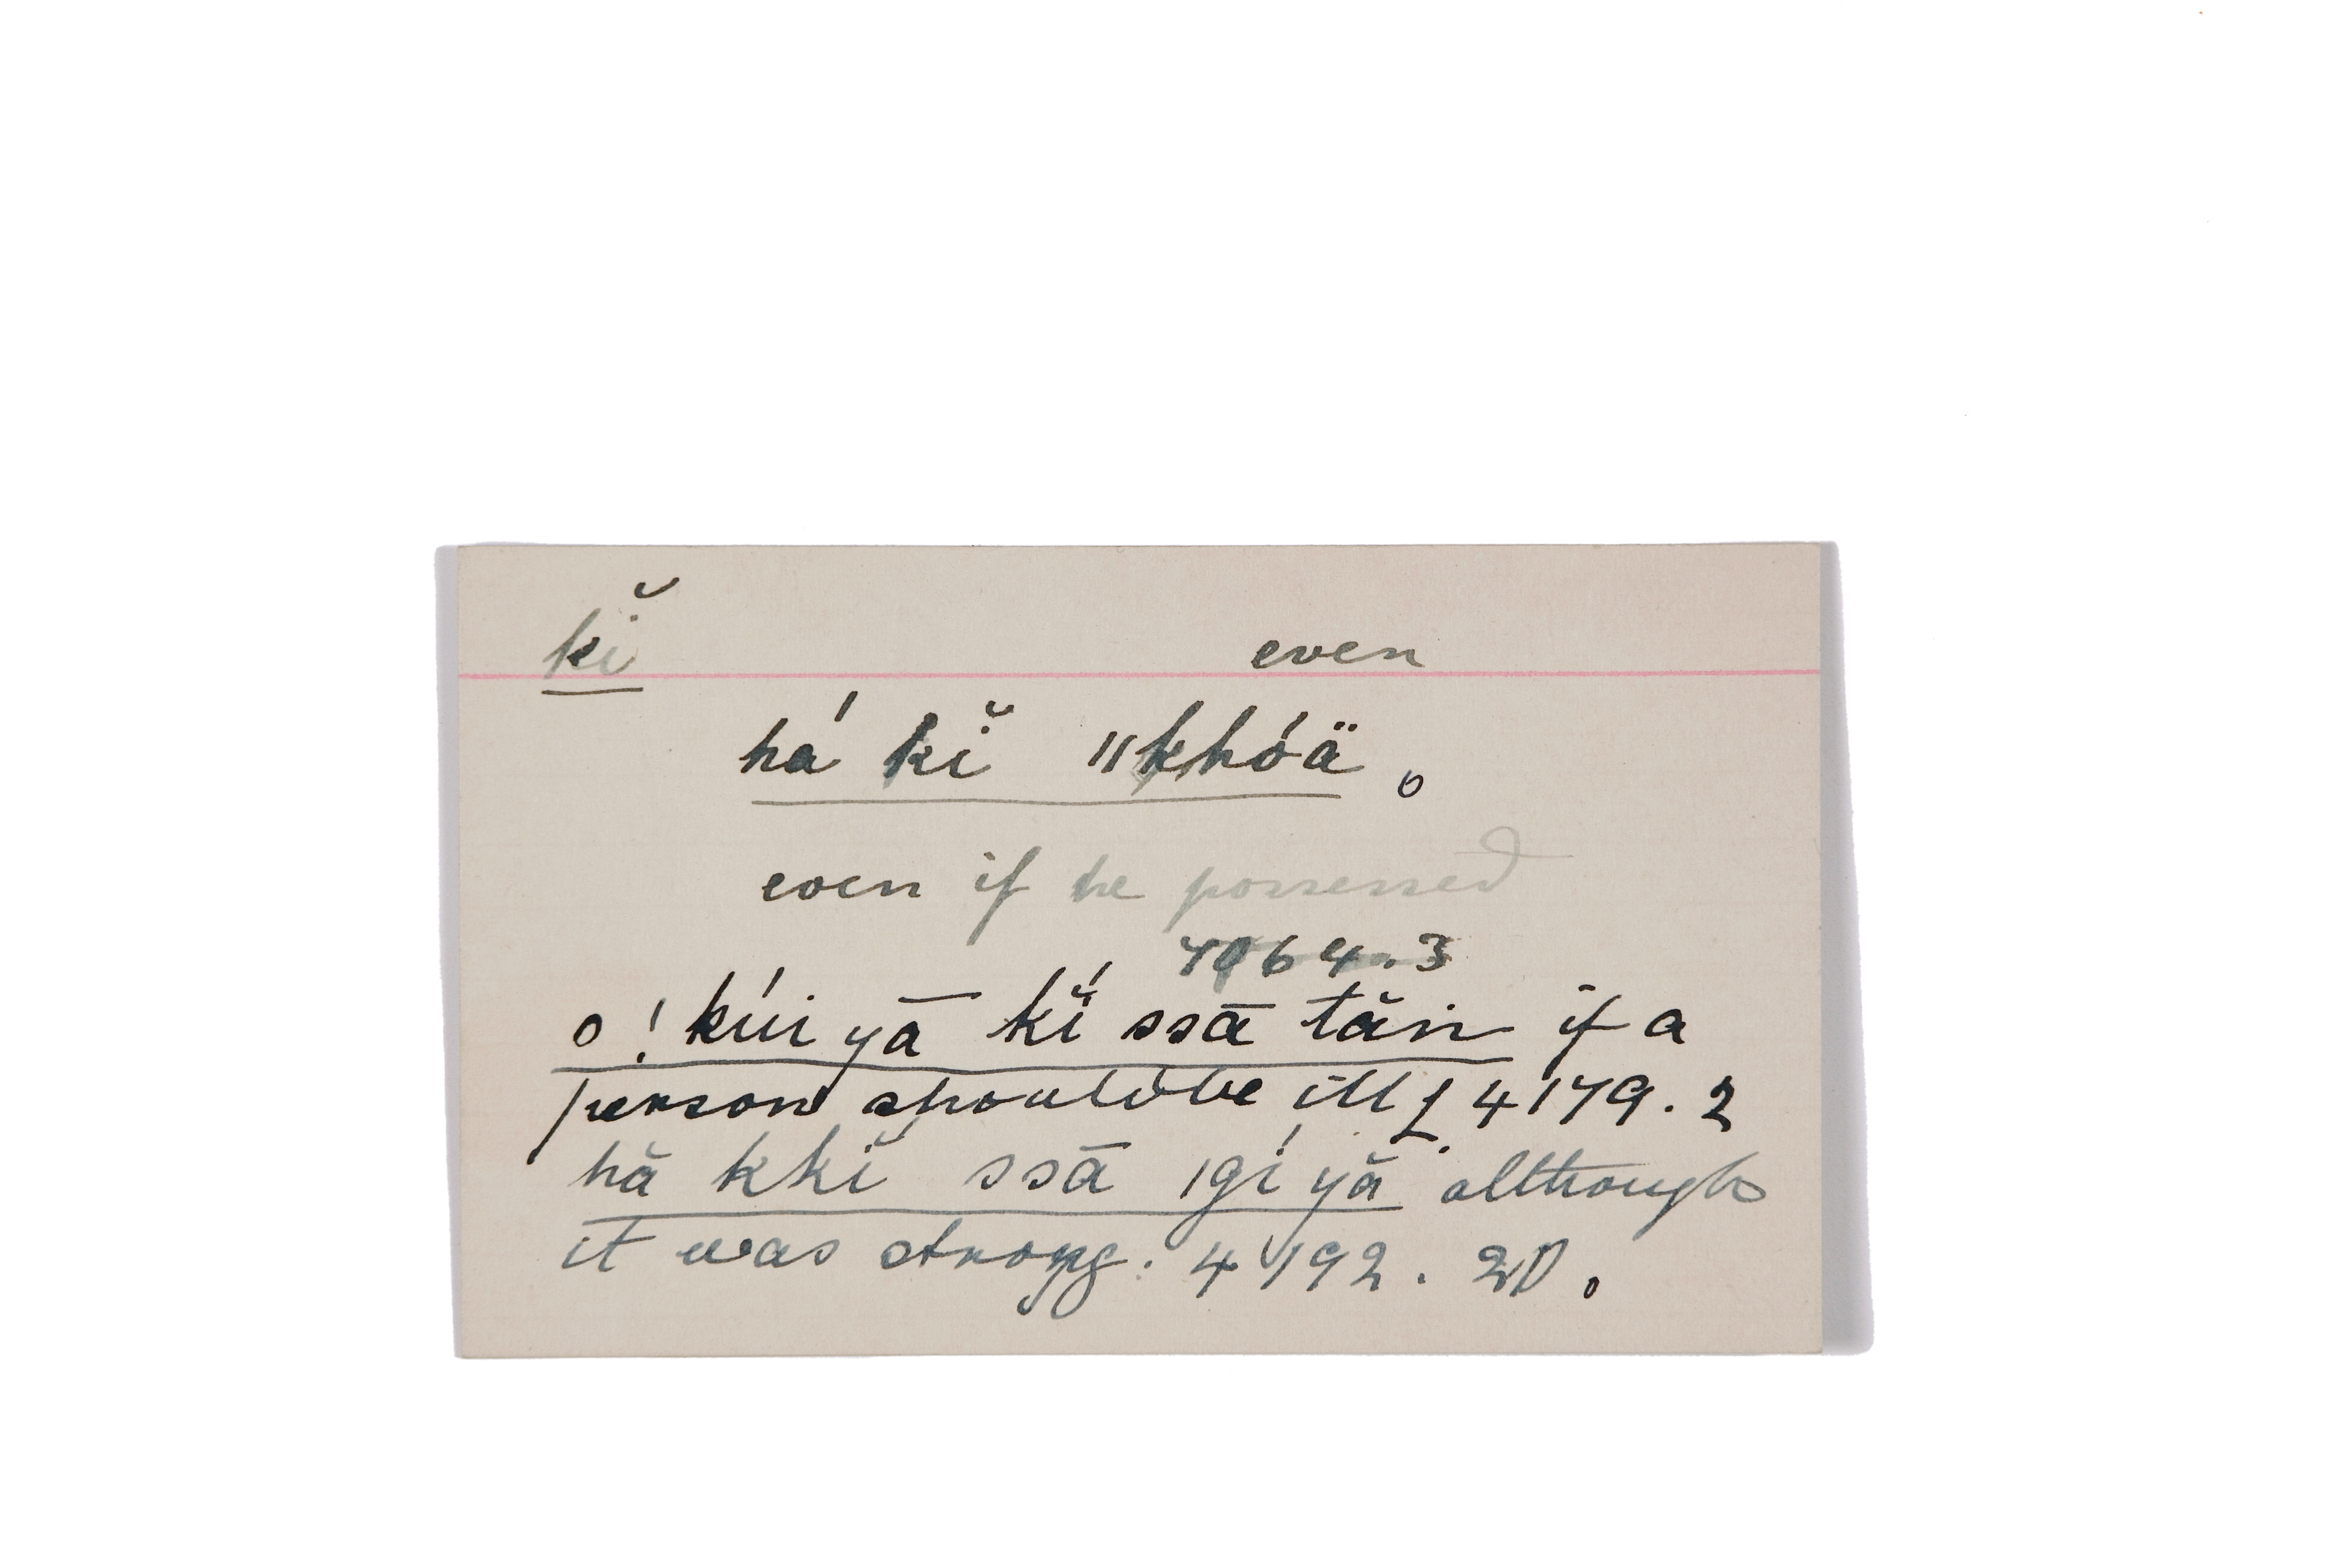 kĭ even
há kĭ ǁkhóä.
even if he possessed
7064.3
o !kúi yā kĭ́ ssā tăn if a
person should be ill L 4179.2
hă kkĭ ssā ǀgí yă although
it was strong. 4192. 20.